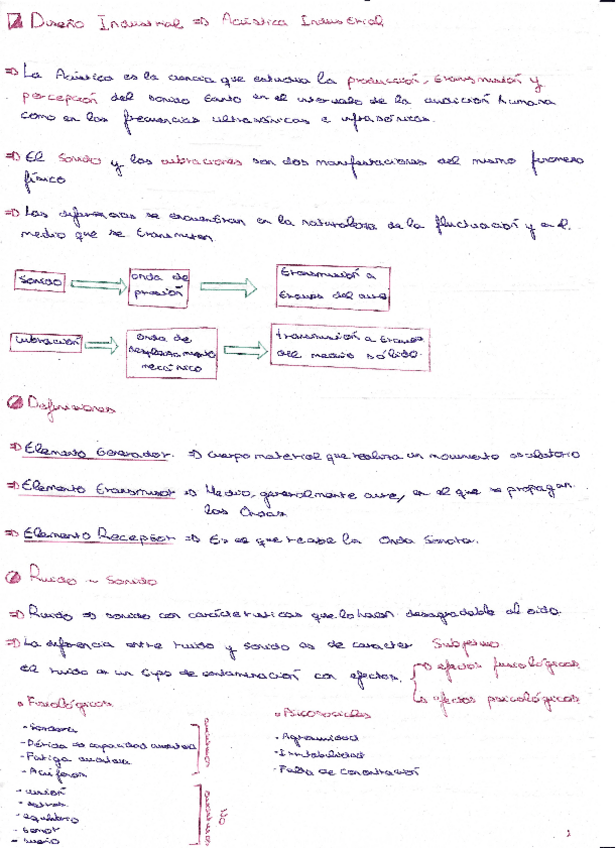 Diseño Industrial ⇒ Acústica Industrial
⇒ La Acústica es la ciencia que estudia la producción, transmisión y
percepción del sonido tanto en el intervalo de la audición humana
como en las frecuencias ultrasónicas e infrasónicas.
⇒ El sonido y las vibraciones son dos manifestaciones del mismo fenómeno
físico
⇒ Las diferencias se encuentran en la naturaleza de la fluctuación y en el
medio que se transmiten
Sonido
onda de
presión
transmisión a
traves del aire
vibración
onda de
desplazamiento
mecánico
transmisión a traves
del medio sólido.
Definiciones
⇒ Elemento Generador. ⇒ cuerpo material que realiza un movimiento oscilatorio
⇒ Elemento transmisor ⇒ Medio, generalmente aire, en el que se propagan
las Ondas
⇒ Elemento Receptor ⇒ Es el que recibe la Onda Sonora.
Ruido - Sonido
⇒ Ruido ⇒ sonido con características que lo hacen desagradable al oido.
⇒ La diferencia entre ruido y sonido es de caracter Subjetivo
el ruido es un tipo de contaminación con efectos.
efectos fisiológicos
efectos psicológicos
Fisiológicos
- Sordera
- Pérdida capacidad auditiva
- Fatiga auditiva
- Acúfenos
auditivos
- visión
- equilibrio
- sueño
NO
auditivos
Psicosociales
- Agresividad
- Irritabilidad
- Falta de concentración
1